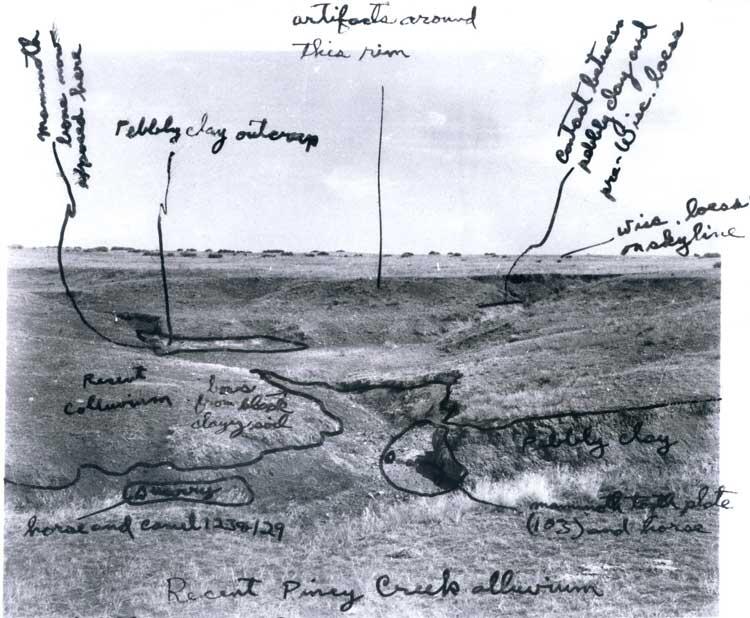 artifacts around
this rim
mammoth
bone now
exposed here
Pebbly clay outcrop
contact between
pebbly clay and
pre-Wisc. loess
Wisc. loess
on skyline
Recent
colluvium
from black
clayey soil
Pebbly clay
Quarry
horse and camel
mammoth tooth plate
(103) and horse
Recent Piney Creek alluvium